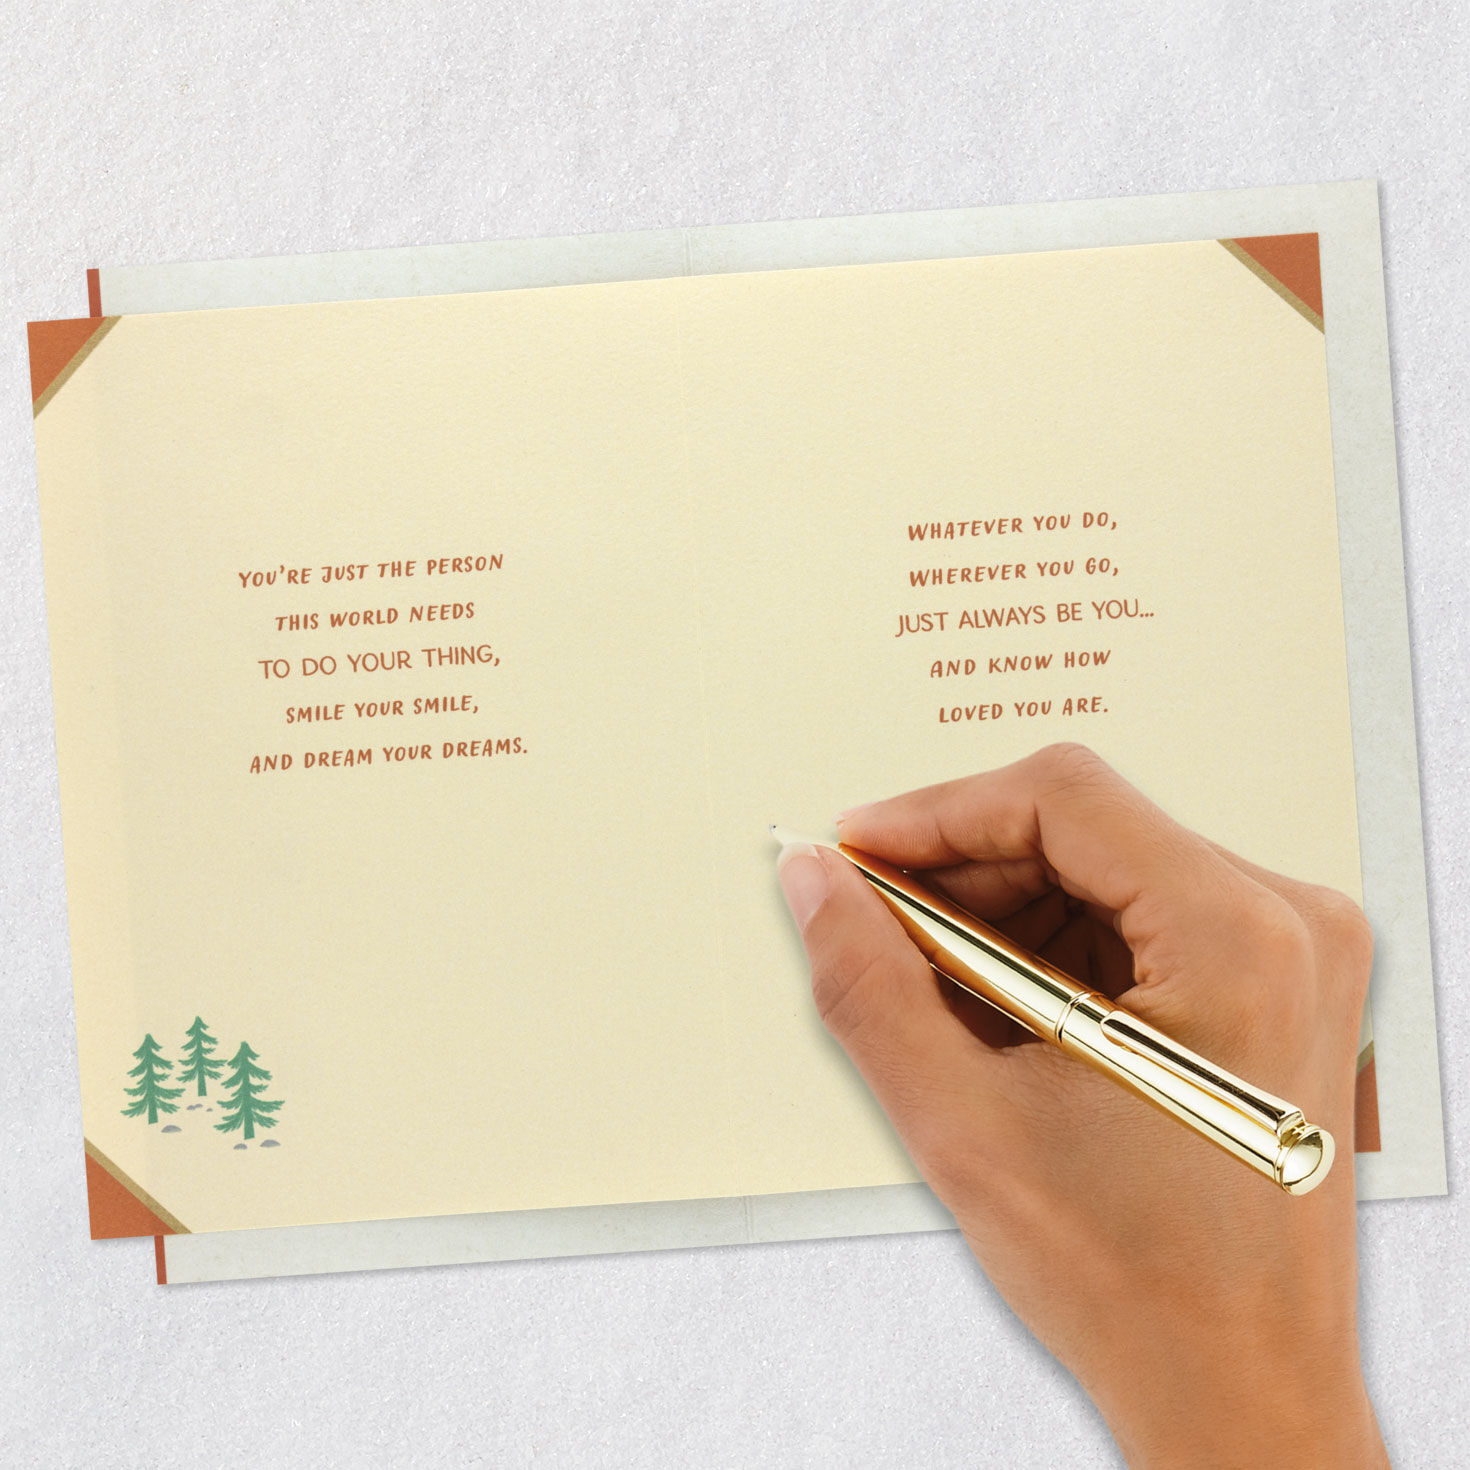 YOU'RE JUST THE PERSON
THIS WORLD NEEDS
TO DO YOUR THING,
SMILE YOUR SMILE,
AND DREAM YOUR DREAMS.
WHATEVER YOU DO,
WHEREVER YOU GO,
JUST ALWAYS BE YOU...
AND KNOW HOW
LOVED YOU ARE.